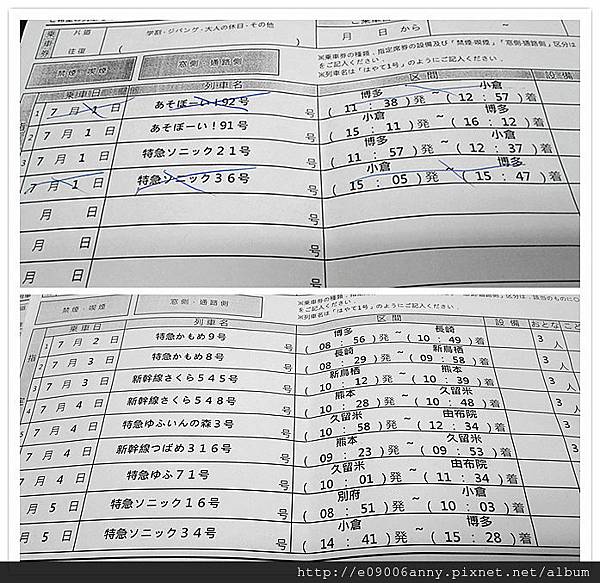 乗車券
片道
往復
学割・ジパング・大人の休日・その他
月 日 から
~
※乗車券の種類、指定席券の設備及び「禁煙・喫煙」「窓側・通路側」区分は
をご記入ください
※列車名は「はやて1号」のようにご記入ください
禁煙・喫煙
窓側・通路側
乗車日 列車名 区間 設備
1 7 月 1 日 あそぼーい!92号 博多 ~ 小倉
( 11 : 38 ) 発 ( 12 : 57 ) 着
2 7 月 1 日 あそぼーい!91号 小倉 ~ 博多
( 15 : 11 ) 発 ( 16 : 12 ) 着
3 7 月 1 日 特急ソニック21号 博多 ~ 小倉
( 11 : 57 ) 発 ( 12 : 37 ) 着
7 月 1 日 特急ソニック36号 小倉 ~ 博多
( 15 : 05 ) 発 ( 15 : 47 ) 着
月 日 号
月 日 号
月 日 号
禁煙・喫煙
窓側・通路側
をご記入ください
※列車名は「はやて1号」のようにご記入ください
乗車日 列車名 区間 設備 おとな こど
1 7 月 2 日 特急かもめ9号 号 博多 ~ 長崎 3 人
( 08 : 56 ) 発 ( 10 : 49 ) 着
2 7 月 3 日 特急かもめ8号 号 長崎 ~ 新鳥栖 3 人
( 08 : 29 ) 発 ( 09 : 58 ) 着
3 7 月 3 日 新幹線さくら545号 号 新鳥栖 ~ 熊本 3 人
( 10 : 12 ) 発 ( 10 : 39 ) 着
7 月 4 日 新幹線さくら548号 号 熊本 ~ 久留米 3
( 10 : 28 ) 発 ( 10 : 48 ) 着
7 月 4 日 特急ゆふいんの森3号 号 久留米 ~ 由布院 3
( 10 : 58 ) 発 ( 12 : 34 ) 着
7 月 4 日 新幹線つばめ316号 号 熊本 ~ 久留米 3
( 09 : 23 ) 発 ( 09 : 53 ) 着
月 4 日 特急ゆふ71号 号 久留米 ~ 由布院
( 10 : 01 ) 発 ( 11 : 34 ) 着
月 5 日 特急ソニック16号 号 別府 ~ 小倉
( 08 : 51 ) 発 ( 10 : 03 ) 着
月 5 日 特急ソニック34号 号 小倉 ~ 博多
( 14 : 41 ) 発 ( 15 : 28 ) 着
http://e09006anny.pixnet.net/album